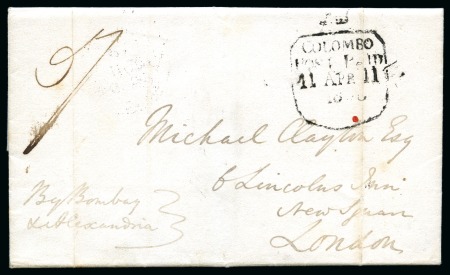 COLOMBO
POST PAID
11 APR 11
Michael Clayton Esq
6 Lincolns Inn
New Square
London
By Bombay
& Alexandria